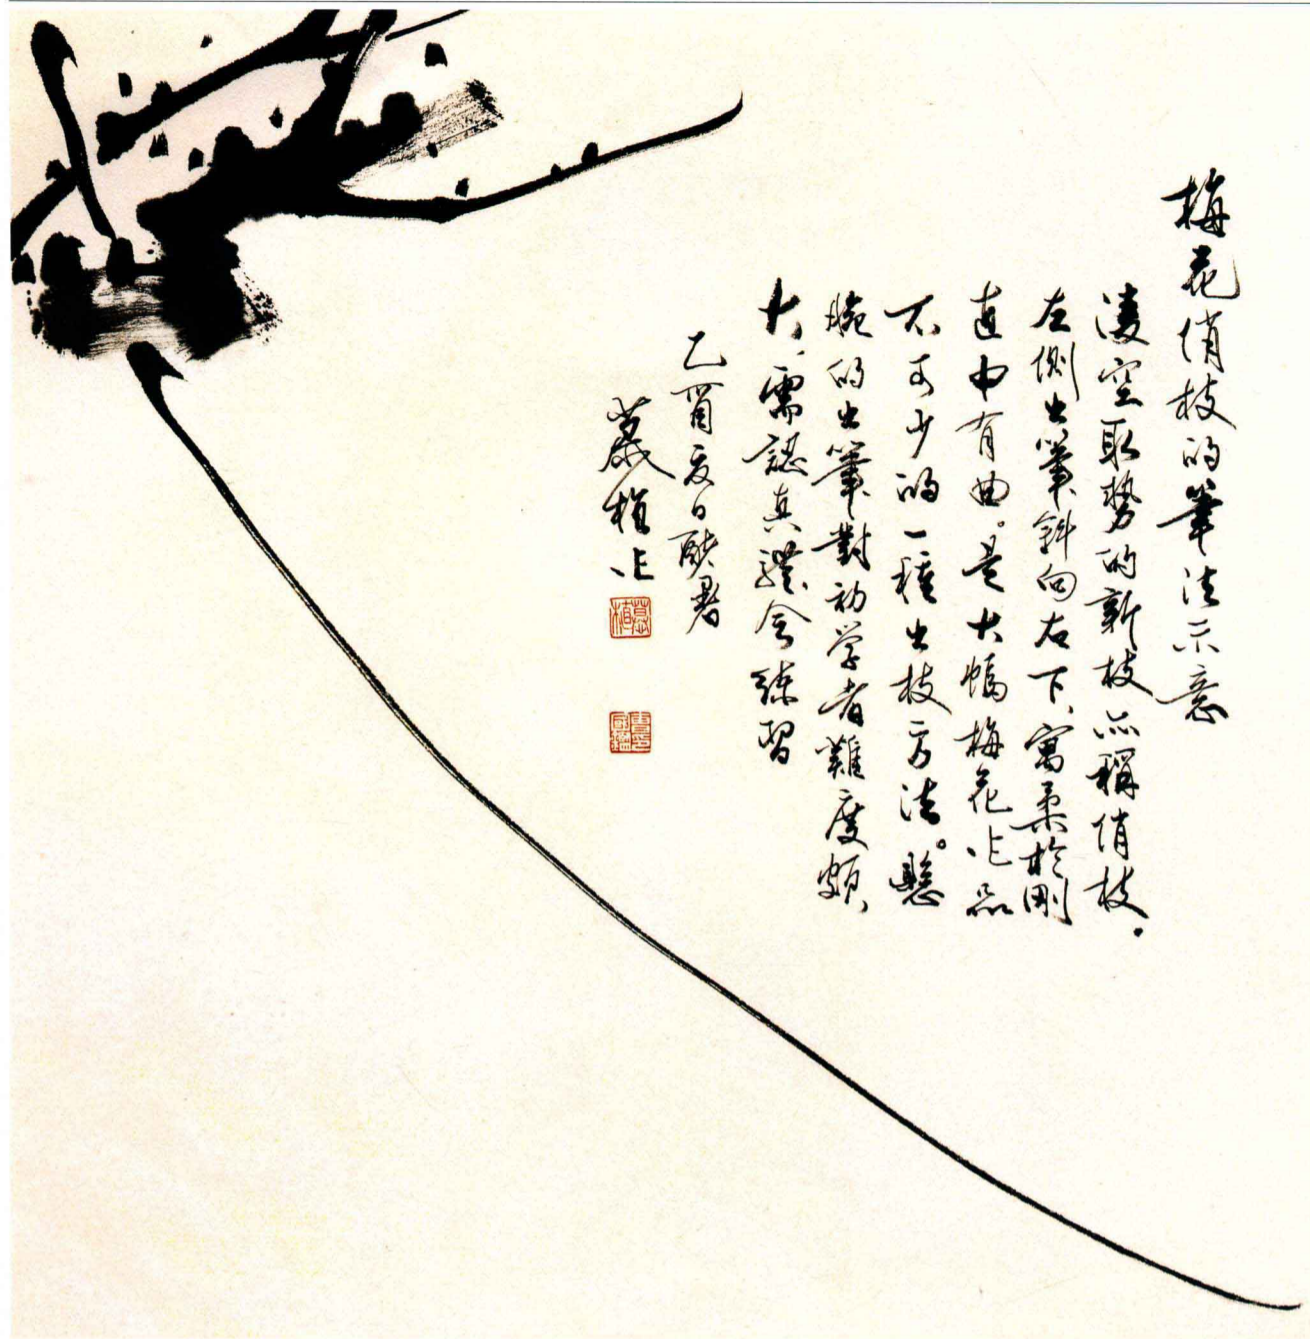 梅花俏枝的筆法示意
凌空取勢的新枝亦稱俏枝。
左側出筆斜向右下、寓柔於剛
直中有曲。是大幅梅花作品
不可少的一種出枝方法。懸
腕的出筆對初学者難度頗
大，需認真體会練習
乙酉夏日酷暑
慕植作
慕植